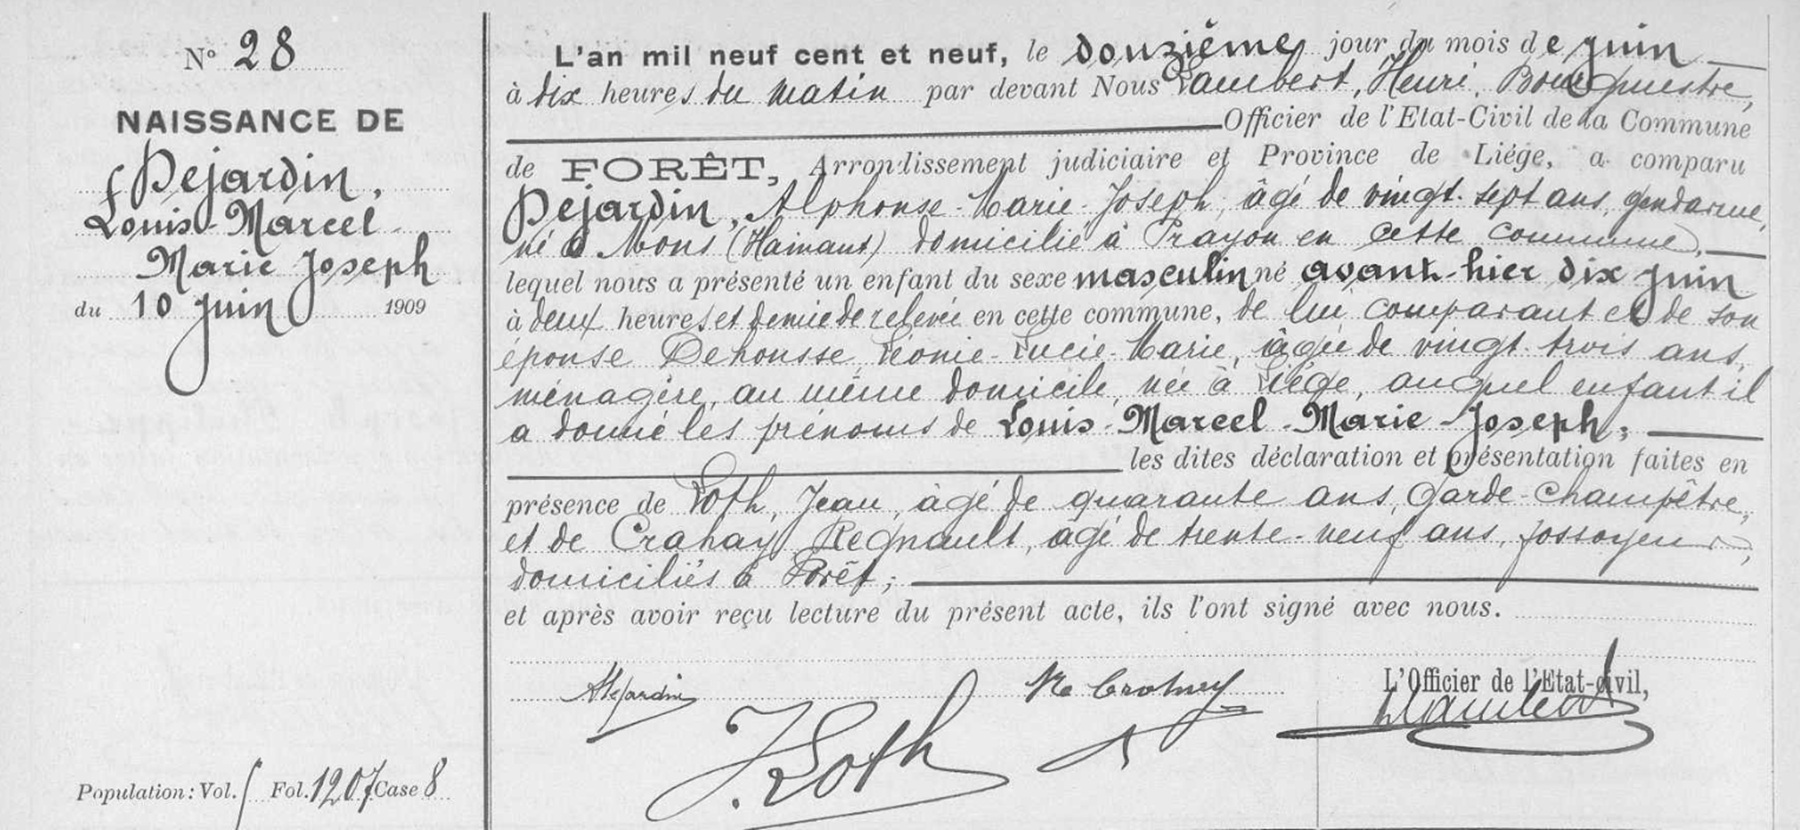 N° 28
NAISSANCE DE
Dejardin,
Louis-Marcel-
Marie Joseph
du 10 juin 1909
Population: Vol. Fol. 1207 Case 8
L'an mil neuf cent et neuf, le douzième jour du mois de juin
à dix heures du matin par devant Nous Lambert, Henri, Bourgmestre,
Officier de l'Etat-Civil de la Commune
de FORÊT, Arrondissement judiciaire et Province de Liége, a comparu
Dejardin, Alphonse-Marie-Joseph, âgé de vingt-sept ans, gendarme,
né à Mons (Hainaut) domicilié à Prayon en cette commune,
lequel nous a présenté un enfant du sexe masculin né avant-hier dix juin
à deux heures et demie de relevée en cette commune, de lui comparant et de son
épouse Dehousse, Léonie-Lucie-Marie, âgée de vingt-trois ans,
ménagère, au même domicile, née à Liége, auquel enfant il
a donné les prénoms de Louis-Marcel-Marie-Joseph;
les dites déclaration et présentation faites en
présence de Loth, Jean, âgé de quarante ans, Garde-Champêtre,
et de Crahay, Regnault, âgé de trente-neuf ans, fossoyeur,
domiciliés à Forêt;
et après avoir reçu lecture du présent acte, ils l'ont signé avec nous.
ADejardin
J. Loth
R Crahay
L'Officier de l'Etat-civil,
HLambert